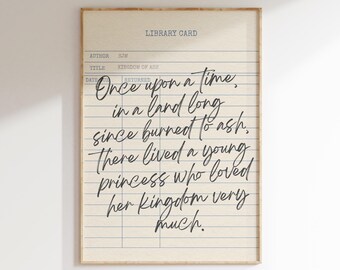 LIBRARY CARD
AUTHOR SJM
TITLE KINGDOM OF ASH
DATE RETURNED
Once upon a time,
in a land long
since burned to ash,
there lived a young
princess who loved
her kingdom very
much.